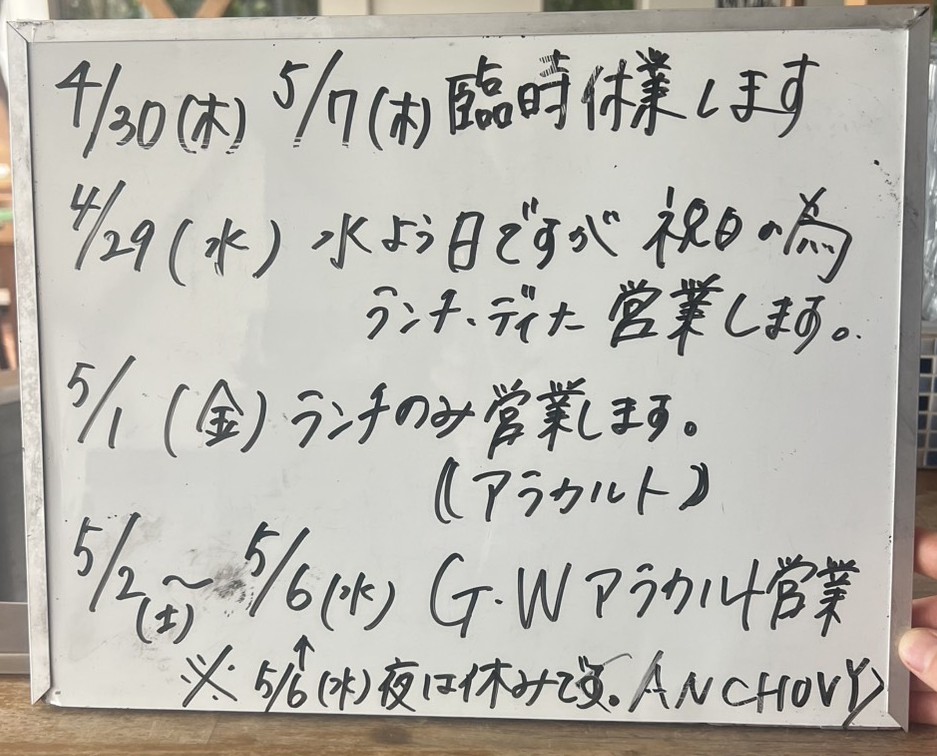 4/30(木) 5/7(木)臨時休業します
4/29(水) 水よう日ですが 祝日の為
ランチ、ディナー 営業します。
5/1(金)ランチのみ営業します。
(アラカルト)
5/2(土)〜5/6(水) G.Wアラカルト営業
※5/6(水)夜は休みです。ANCHOVY